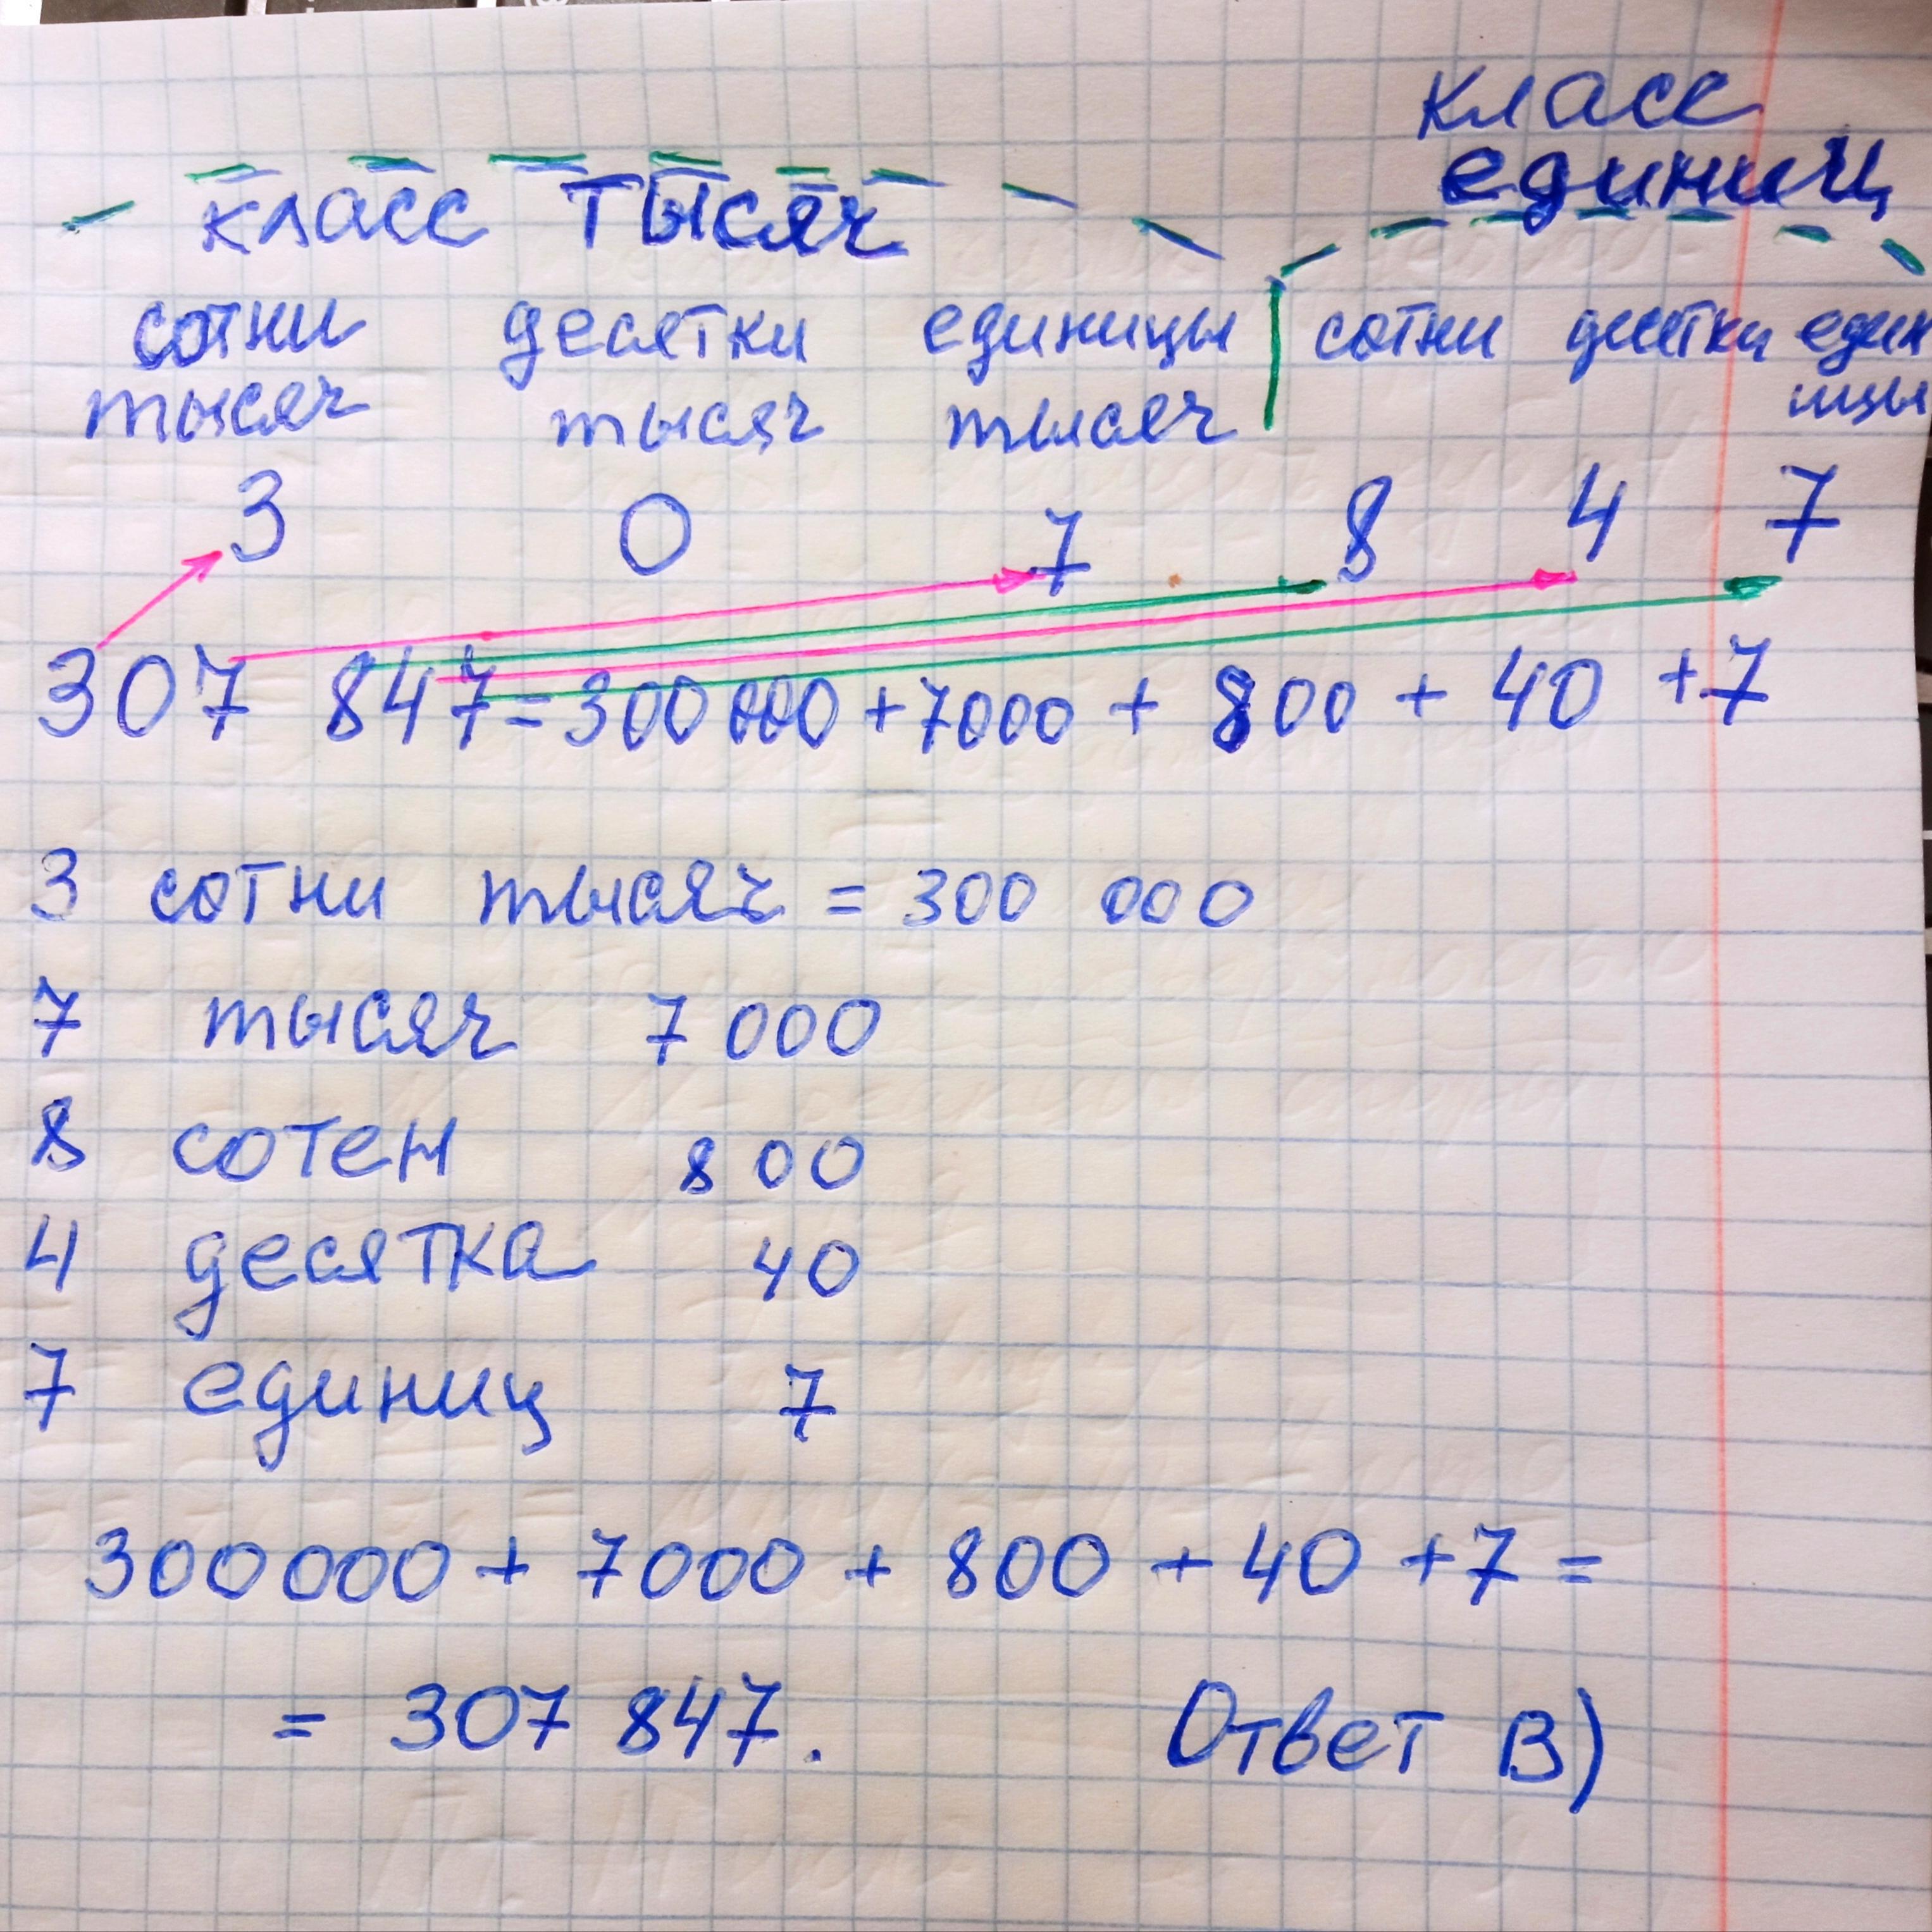 класс
единиц
класс тысяч
сотни десятки единицы сотни десятки един
тысяч тысяч тысяч ицы
3 0 7 8 4 7
307 847=300 000 +7000 + 800 + 40 +7
3 сотни тысяч = 300 000
7 тысяч 7 000
8 сотен 800
4 десятка 40
7 единиц 7
300000 + 7000 + 800 + 40 +7 =
= 307 847. Ответ В)